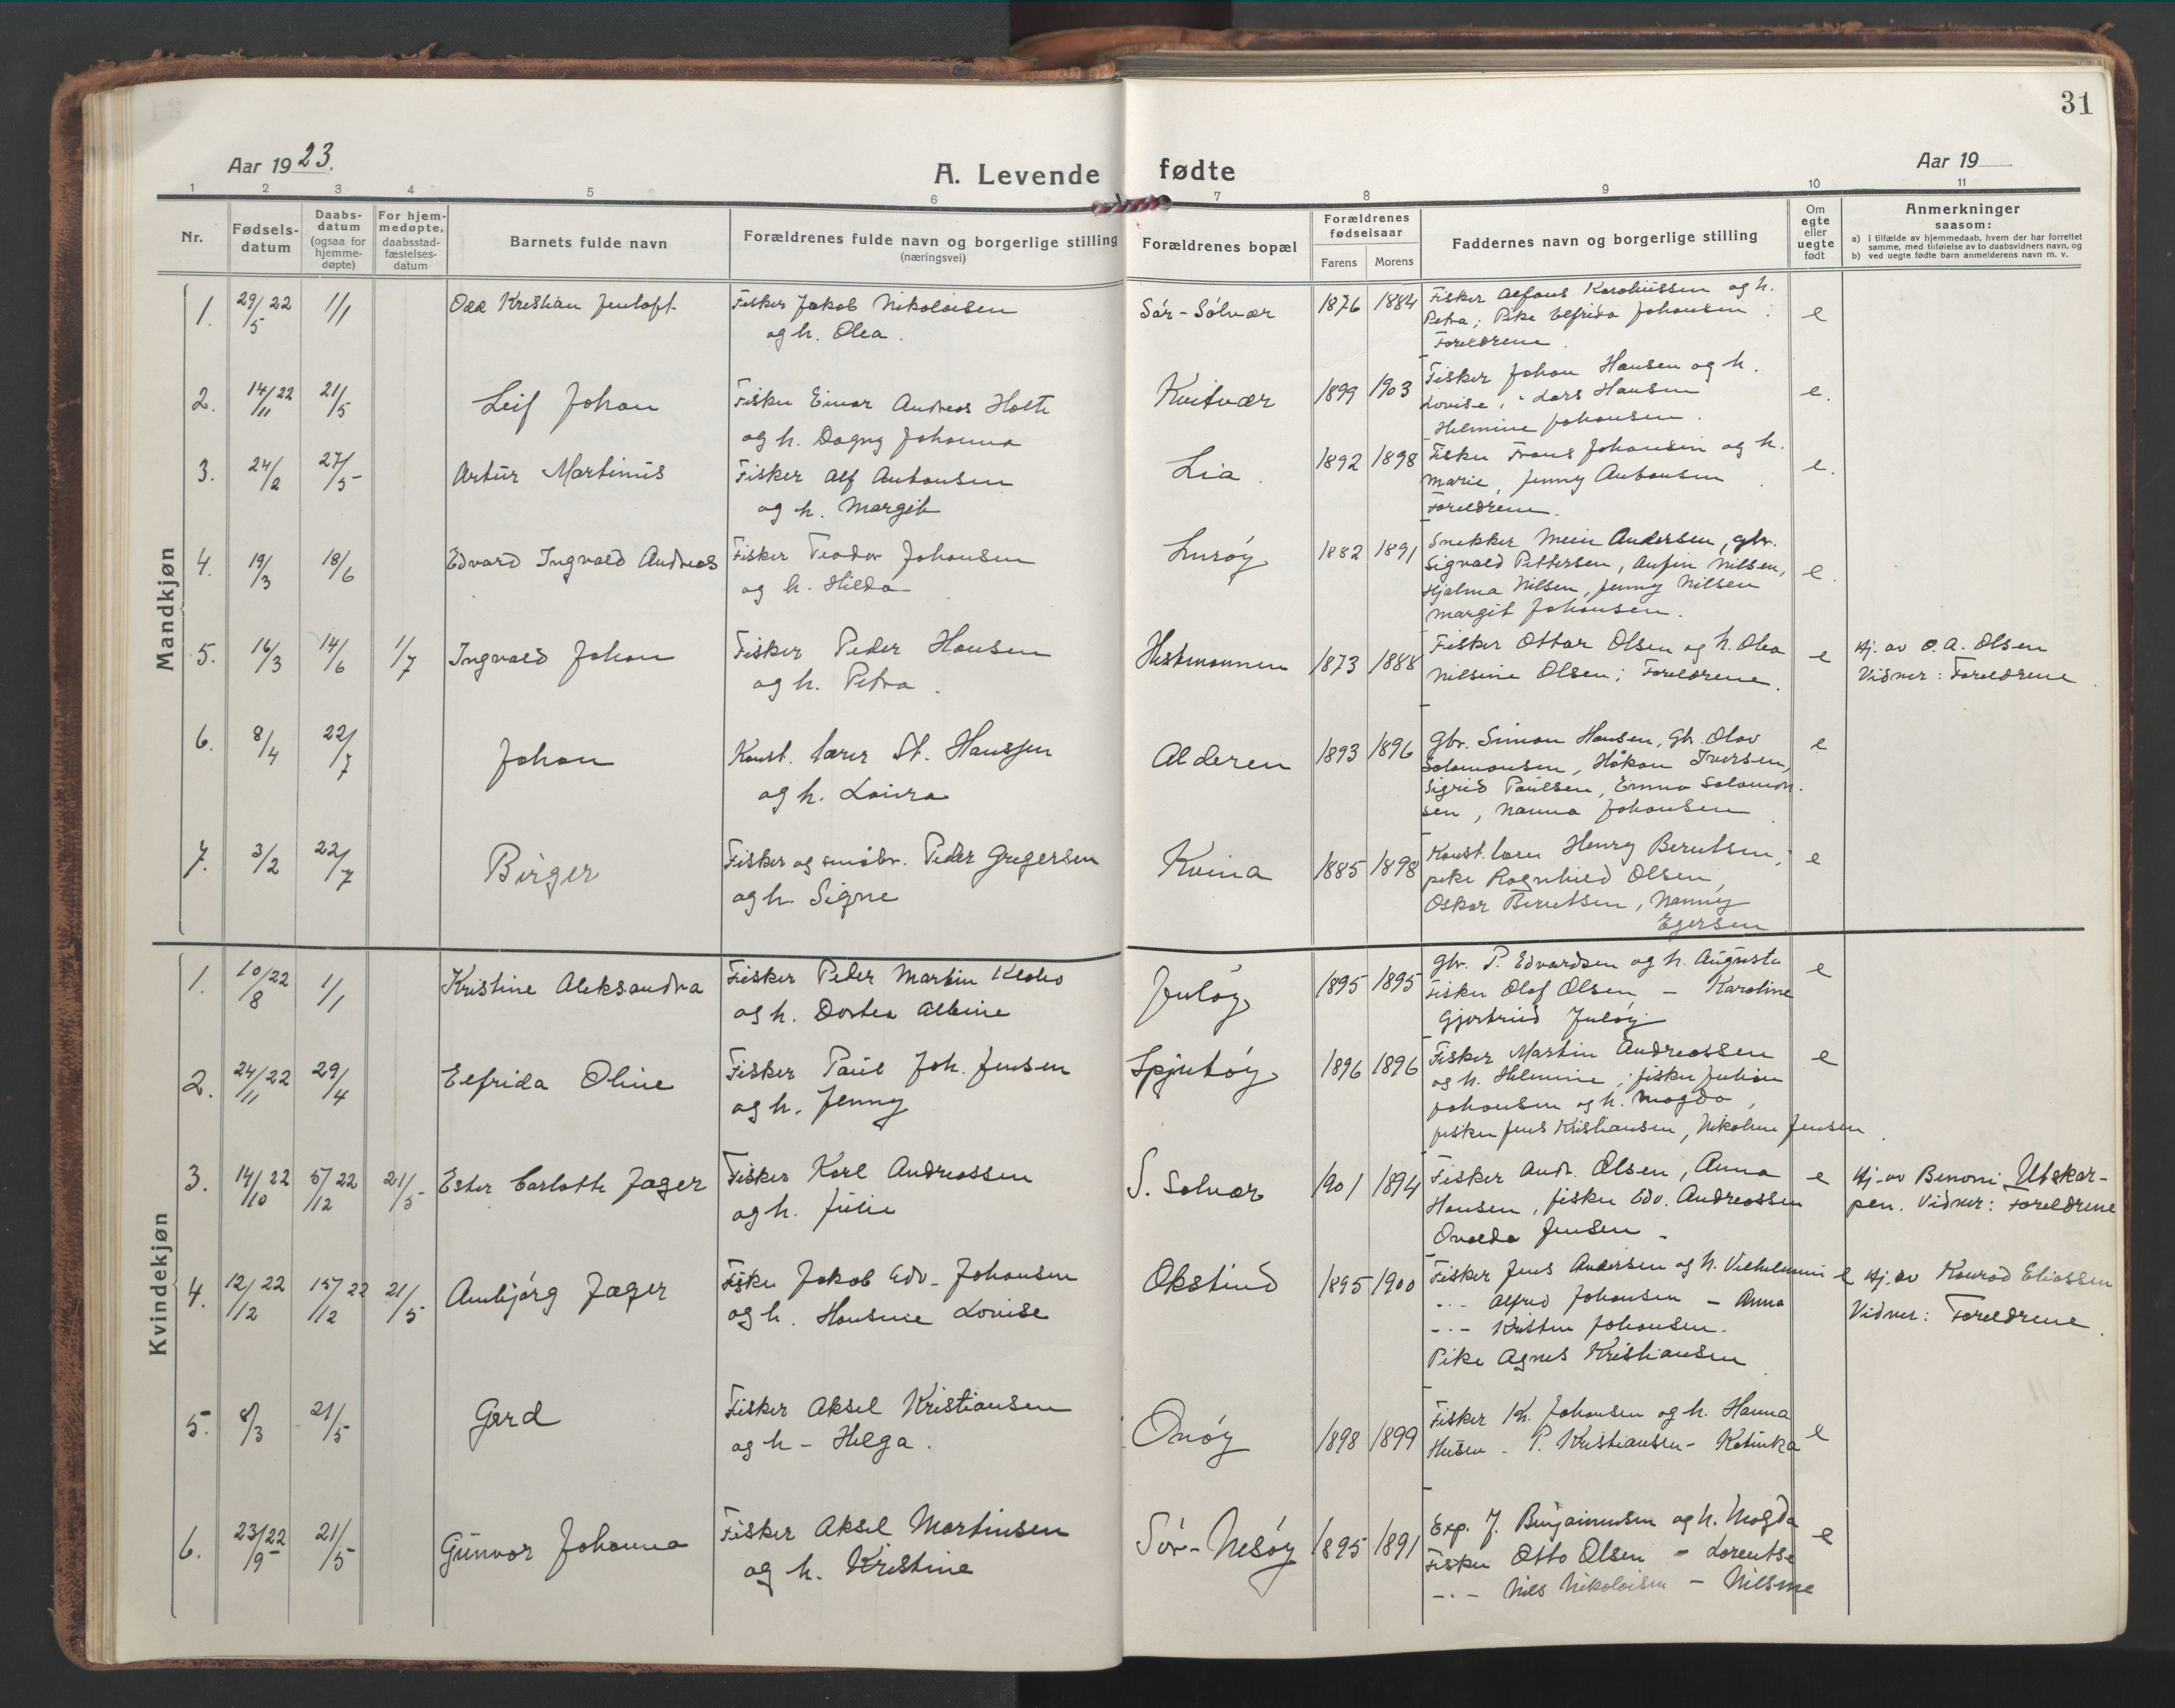 31
Aar 1923.
A. Levende fødte
Aar 19
1 2 3 4 5 6 7 8 9 10 11
Nr.
Fødsels-
datum
Daabs-
datum
(ogsaa for
hjemme-
døpte)
For hjem-
medøpte,
daabsstad-
fæstelses-
datum
Barnets fulde navn
Forældrenes fulde navn og borgerlige stilling
(næringsvei)
Forældrenes bopæl
Forældrenes
fødselsaar
Farens Morens
Faddernes navn og borgerlige stilling
Om
egte
eller
uegte
født
Anmerkninger
saasom:
a) i tilfælde av hjemmedaab, hvem der har forrettet
samme, med tilføielse av to daabsvidners navn, og
b) ved uegte fødte barn anmelderens navn m. v.
Mandkjøn
1. 29/5 22 1/1 Odd Kristian Jentoft
Fisker Jakob Nikolaisen
og h. Olea.
Sør-Solvær 1876 1884
Fisker Alfons Karoliussen og h.
Petra; Pike Elfrida Johansen;
Foreldrene.
e
2. 14/11 22 21/5 Leif Johan
Fisker Einar Andreas Holte
og h. Dagny Johanna
Kvitvær 1899 1903
Fisker Johan Hansen og h.
Lovise, " Lars Hansen
Helmine Johansen.
e.
3. 24/2 27/5 Artur Martinus
Fisker Alf Antonsen
og h. Margit
Lia. 1892 1898
Fisker Frans Johansen og h.
Marie, Jenny Antonsen
Foreldrene.
e.
4. 19/3 18/6 Edvard Ingvald Andreas
Fisker Teodor Johansen
og h. Hilda
Lurøy 1882 1891
Snekker Meier Andersen, gbr.
Sigvald Pettersen, Anfin Nilsen,
Hjalma Nilsen, Jenny Nilsen
Margit Johansen.
e.
5. 16/3 14/6 1/7 Ingvald Johan
Fisker Peder Hansen
og h. Petra.
Hestmannen 1873 1888
Fisker Ottar Olsen og h. Olea
Nilsine Olsen; Foreldrene.
e
Hj. av O. A. Olsen
Vidner: Foreldrene
6. 8/4 22/7 Johan
Konst. lærer St. Hanssen
og h. Laura
Alderen 1893 1896
Gbr. Simon Hansen, Gbr. Olav
Solomonsen, Håkon Iversen,
Sigrid Paulsen, Emma Solomon-
sen, Nanna Johansen
e
7. 3/2 22/7 Birger
Fisker og småbr. Peder Gregersen
og h. Signe
Kvina 1885 1898
Konst. lærer Henry Berntsen;
pike Ragnhild Olsen,
Oskar Berntsen, Nanny
Egersen
e
Kvindekjøn
1. 10/8 22 1/1 Kristine Aleksandra
Fisker Peder Martin
og h. Dortea Albine
Juløy 1895 1895
Gbr. P. Edvardsen og h. Augusta
Fisker Olaf Olsen - Karoline
Gjertrud Juløy
e
2. 24/11 22 29/4 Elfrida Oline
Fisker Paul Joh. Jensen
og h. Jenny
Spjutøy 1896 1896
Fisker Martin Andreassen
og h. Helmine; fisker Julian
Johansen og h. Magda,
fisker Jens Kristiansen, Nikoline Jensen
e
3. 14/10 22 5/12 22 21/5 Ester Carlotte Jager
Fisker Karl Andreassen
og h. Julie
S. Solvær 1901 1894
Fisker Andr. Olsen, Anna
Hansen, fisker Edv. Andreassen
Ovalda Jensen
e
Hj. av Benoni Utskar-
pen. Vidner: Foreldrene
4. 12/12 22 15/12 22 21/5 Annbjørg Jager
Fisker Jakob Edv. Johansen
og h. Hansine Lovise
Okstind 1895 1900
Fisker Jens Andersen og h. Vilhelmine
-"- Alfred Johansen - Anna
-"- Kristen Johansen.
Pike Agnes Kristiansen
e
Hj. av Konrad Eliassen
Vidner: Foreldrene.
5. 8/3 21/5 Gerd
Fisker Aksel Kristiansen
og h - Helga.
Onøy 1898 1899
Fisker Kr. Johansen og h. Hanna
P. Kristiansen - Katinka
e
6. 23/9 22 21/5 Gunvor Johanna
Fisker Aksel Martinsen
og h. Kristine
Sør-Nesøy 1895 1891
Exp. J. Benjaminsen og h. Magda
Fisker Otto Olsen - Lorentse
-"- Nils Nikolaisen - Nilsine
e